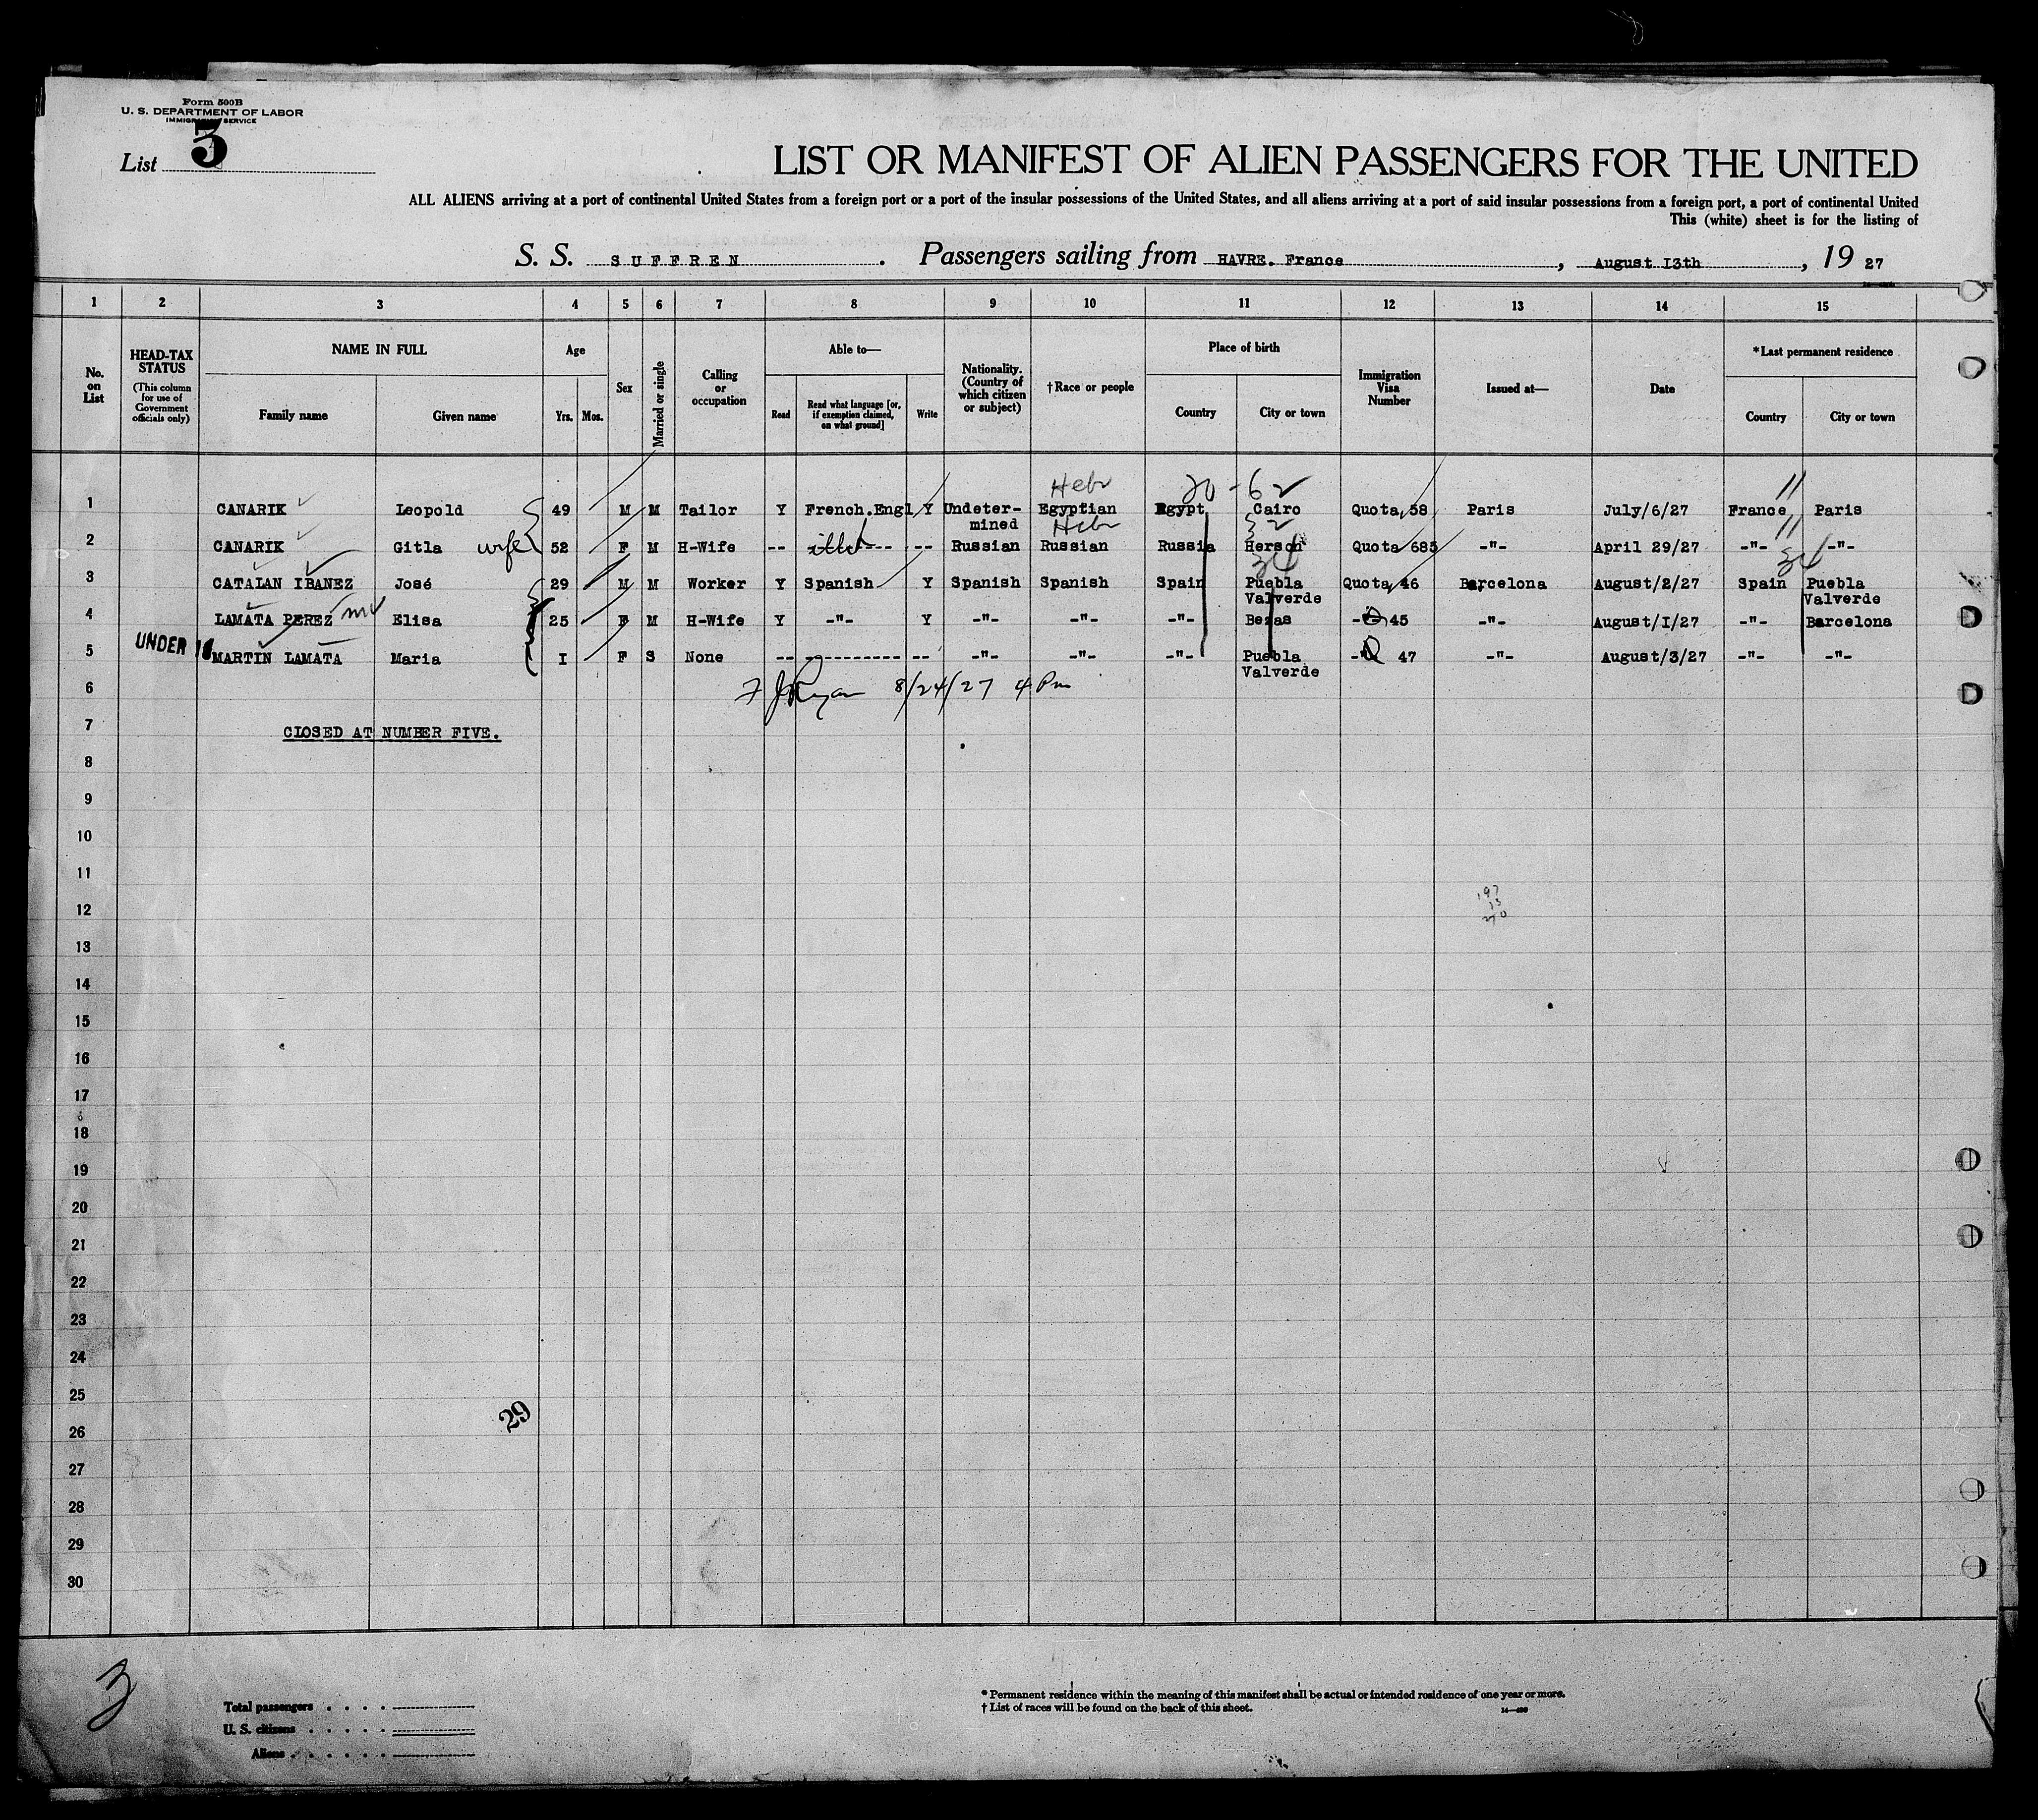 Form 500B
U. S. DEPARTMENT OF LABOR
IMMIGRATION SERVICE
List 3
LIST OR MANIFEST OF ALIEN PASSENGERS FOR THE UNITED
ALL ALIENS arriving at a port of continental United States from a foreign port or a port of the insular possessions of the United States, and all aliens arriving at a port of said insular possessions from a foreign port, a port of continental United
This (white) sheet is for the listing of
S. S. SUFFREN . Passengers sailing from HAVRE. France , August I3th , 19 27
1 2 3 4 5 6 7 8 9 10 11 12 13 14 15
No. on List
HEAD-TAX STATUS
(This column for use of Government officials only)
NAME IN FULL
Family name Given name
Age
Yrs. Mos.
Sex
Married or single
Calling or occupation
Able to—
Read
Read what language [or, if exemption claimed, on what ground]
Write
Nationality. (Country of which citizen or subject)
†Race or people
Place of birth
Country City or town
Immigration Visa Number
Issued at—
Date
*Last permanent residence
Country City or town
Hebr 20-62 11
1 CANARIK Leopold 49 M M Tailor Y French.Engl Y Undeter-mined Egyptian Egypt Cairo Quota 58 Paris July/6/27 France Paris
Hebr 32 11
2 CANARIK Gitla wife 52 F M H-Wife -- illit --- -- Russian Russian Russia Herson Quota 685 -"- April 29/27 -"- -"-
34 34
3 CATALAN IBANEZ José 29 M M Worker Y Spanish Y Spanish Spanish Spain Puebla Valverde Quota 46 Barcelona August/2/27 Spain Puebla Valverde
4 LAMATA PEREZ Elisa 25 F M H-Wife Y -"- Y -"- -"- -"- Bezas -"- 45 -"- August/I/27 -"- Barcelona
UNDER 16
5 MARTIN LAMATA Maria I F S None -- ---------- -- -"- -"- -"- Puebla Valverde -"- Q 47 -"- August/3/27 -"- -"-
6 F J Ryan 8/24/27 4 Pm
7 CLOSED AT NUMBER FIVE.
8
9
10
11
12
13
14
15
16
17
18
19
20
21
22
23
24
25
29
26
27
28
29
30
3
Total passengers
U. S. citizens
Aliens
* Permanent residence within the meaning of this manifest shall be actual or intended residence of one year or more.
† List of races will be found on the back of this sheet.